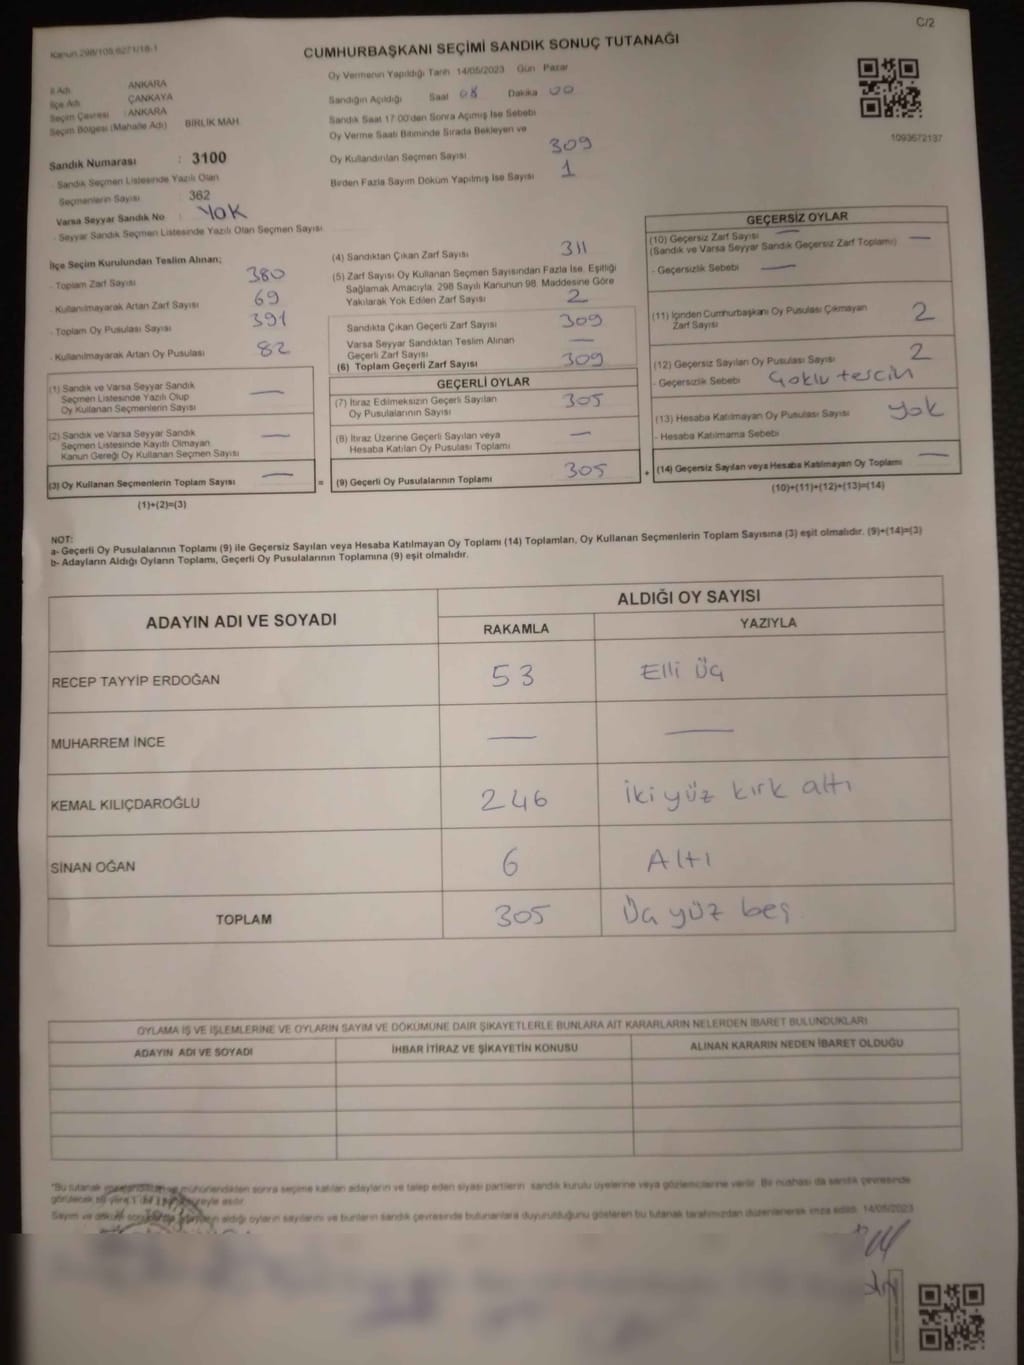 C/2
Kanun 298/105,6271/18-1
CUMHURBAŞKANI SEÇİMİ SANDIK SONUÇ TUTANAĞI
İl Adı : ANKARA
İlçe Adı : ÇANKAYA
Seçim Çevresi : ANKARA
Seçim Bölgesi (Mahalle Adı) BİRLİK MAH.
Sandık Numarası : 3100
- Sandık Seçmen Listesinde Yazılı Olan
Seçmenlerin Sayısı : 362
Varsa Seyyar Sandık No : YOK
- Seyyar Sandık Seçmen Listesinde Yazılı Olan Seçmen Sayısı
Oy Vermenin Yapıldığı Tarih 14/05/2023 Gün Pazar
Sandığın Açıldığı Saat 08 Dakika 00
Sandık Saat 17:00'den Sonra Açımış İse Sebebi
Oy Verme Saati Bitiminde Sırada Bekleyen ve
Oy Kullandırılan Seçmen Sayısı 309
Birden Fazla Sayım Döküm Yapılmış İse Sayısı 1
1093672137
İlçe Seçim Kurulundan Teslim Alınan;
- Toplam Zarf Sayısı 380
- Kullanılmayarak Artan Zarf Sayısı 69
- Toplam Oy Pusulası Sayısı 391
- Kullanılmayarak Artan Oy Pusulası 82
(1) Sandık ve Varsa Seyyar Sandık
Seçmen Listesinde Yazılı Olup
Oy Kullanan Seçmenlerin Sayısı —
(2) Sandık ve Varsa Seyyar Sandık
Seçmen Listesinde Kayıtlı Olmayan
Kanun Gereği Oy Kullanan Seçmen Sayısı —
(3) Oy Kullanan Seçmenlerin Toplam Sayısı —
(1)+(2)=(3)
(4) Sandıktan Çıkan Zarf Sayısı 311
(5) Zarf Sayısı Oy Kullanan Seçmen Sayısından Fazla İse, Eşitliği
Sağlamak Amacıyla, 298 Sayılı Kanunun 98. Maddesine Göre
Yakılarak Yok Edilen Zarf Sayısı 2
Sandıkta Çıkan Geçerli Zarf Sayısı 309
Varsa Seyyar Sandıktan Teslim Alınan
Geçerli Zarf Sayısı —
(6) Toplam Geçerli Zarf Sayısı 309
GEÇERLİ OYLAR
(7) İtiraz Edilmeksizin Geçerli Sayılan
Oy Pusulalarının Sayısı 305
(8) İtiraz Üzerine Geçerli Sayılan veya
Hesaba Katılan Oy Pusulası Toplamı —
= (9) Geçerli Oy Pusulalarının Toplamı 305 +
GEÇERSİZ OYLAR
(10) Geçersiz Zarf Sayısı —
(Sandık ve Varsa Seyyar Sandık Geçersiz Zarf Toplamı) —
- Geçersizlik Sebebi —
(11) İçinden Cumhurbaşkanı Oy Pusulası Çıkmayan
Zarf Sayısı 2
(12) Geçersiz Sayılan Oy Pusulası Sayısı 2
- Geçersizlik Sebebi Çoklu tercih
(13) Hesaba Katılmayan Oy Pusulası Sayısı yok
- Hesaba Katılmama Sebebi
(14) Geçersiz Sayılan veya Hesaba Katılmayan Oy Toplamı —
(10)+(11)+(12)+(13)=(14)
NOT:
a- Geçerli Oy Pusulalarının Toplamı (9) ile Geçersiz Sayılan veya Hesaba Katılmayan Oy Toplamı (14) Toplamları, Oy Kullanan Seçmenlerin Toplam Sayısına (3) eşit olmalıdır. (9)+(14)=(3)
b- Adayların Aldığı Oyların Toplamı, Geçerli Oy Pusulalarının Toplamına (9) eşit olmalıdır.
ADAYIN ADI VE SOYADI
ALDIĞI OY SAYISI
RAKAMLA YAZIYLA
RECEP TAYYİP ERDOĞAN 53 Elli Üç
MUHARREM İNCE — —
KEMAL KILIÇDAROĞLU 246 iki yüz kırk altı
SİNAN OĞAN 6 Altı
TOPLAM 305 Üç yüz beş
OYLAMA İŞ VE İŞLEMLERİNE VE OYLARIN SAYIM VE DÖKÜMÜNE DAİR ŞİKAYETLERLE BUNLARA AİT KARARLARIN NELERDEN İBARET BULUNDUKLARI
ADAYIN ADI VE SOYADI İHBAR İTİRAZ VE ŞİKAYETİN KONUSU ALINAN KARARIN NEDEN İBARET OLDUĞU
*Bu tutanak mühürlendikten sonra seçime katılan adayların ve talep eden siyasi partilerin sandık kurulu üyelerine veya gözlemcilerine verilir. Bir nüshası da sandık çevresinde
görülecek bir yere süreyle asılır.
Sayım ve döküm aldığı oyların sayılarını ve bunların sandık çevresinde bulunanlara duyurulduğunu gösteren bu tutanak tarafımızdan düzenlenerek imza edildi. 14/05/2023